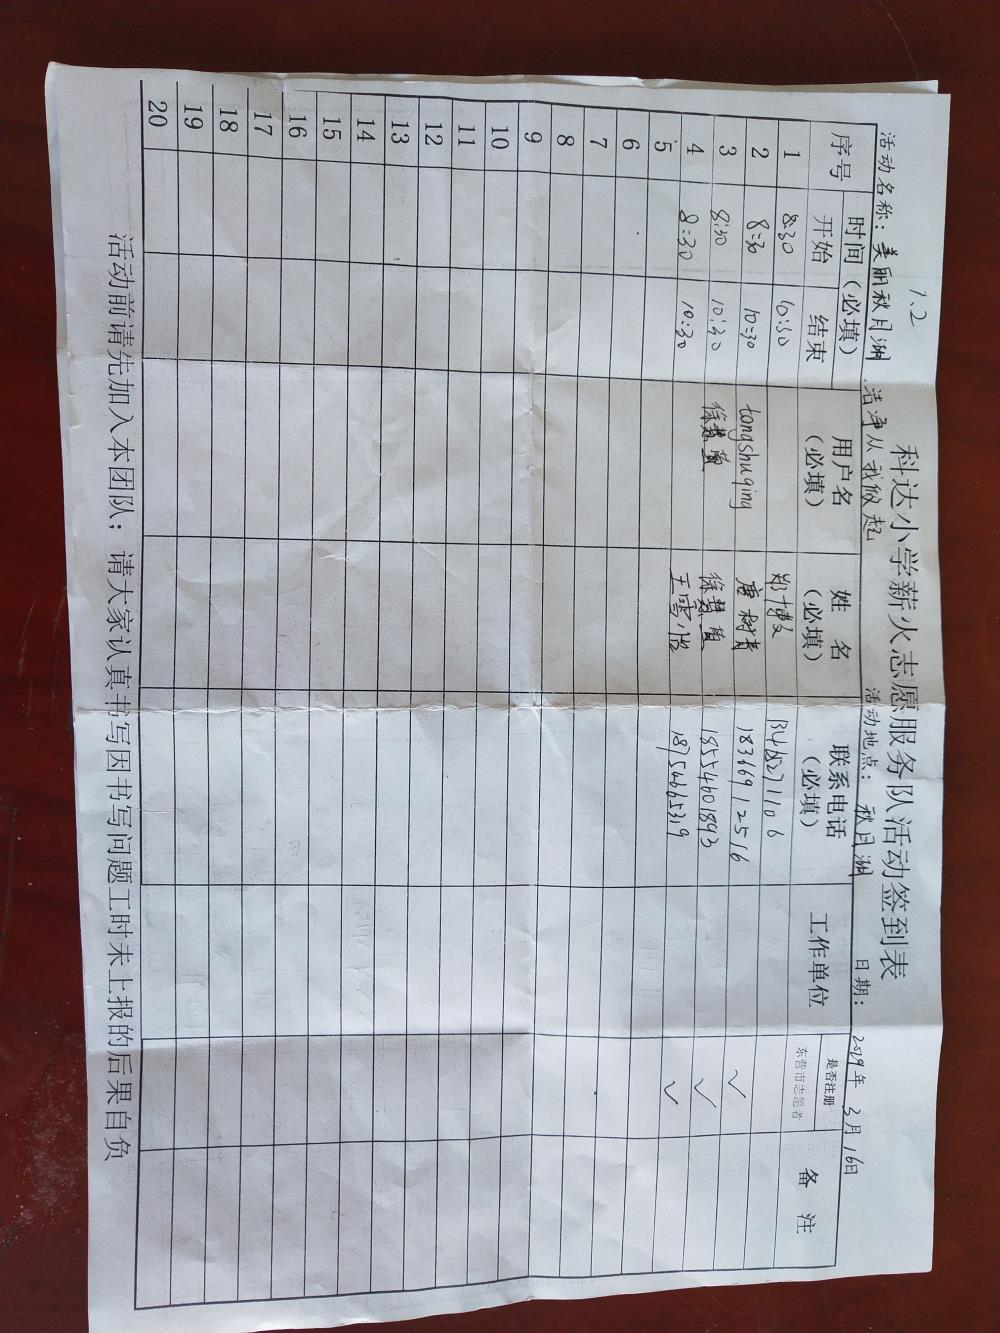 1.2
科达小学薪火志愿服务队活动签到表
活动名称：美丽秋月湖，洁净从我做起 活动地点：秋月湖 日期：2019年3月16日
序号 时间（必填） 用户名（必填） 姓 名（必填） 联系电话（必填） 工作单位 是否注册东营市志愿者 备 注
开始 结束
1 8:30 10:30 郑博文
2 8:30 10:30 tongshuqing 唐树青 18366912516 ✓
3 8:30 10:30 徐慧 徐慧 18554601893 ✓
4 8:30 10:30 王雪 18754665319 ✓
5
6
7
8
9
10
11
12
13
14
15
16
17
18
19
20
活动前请先加入本团队；请大家认真书写因书写问题工时未上报的后果自负